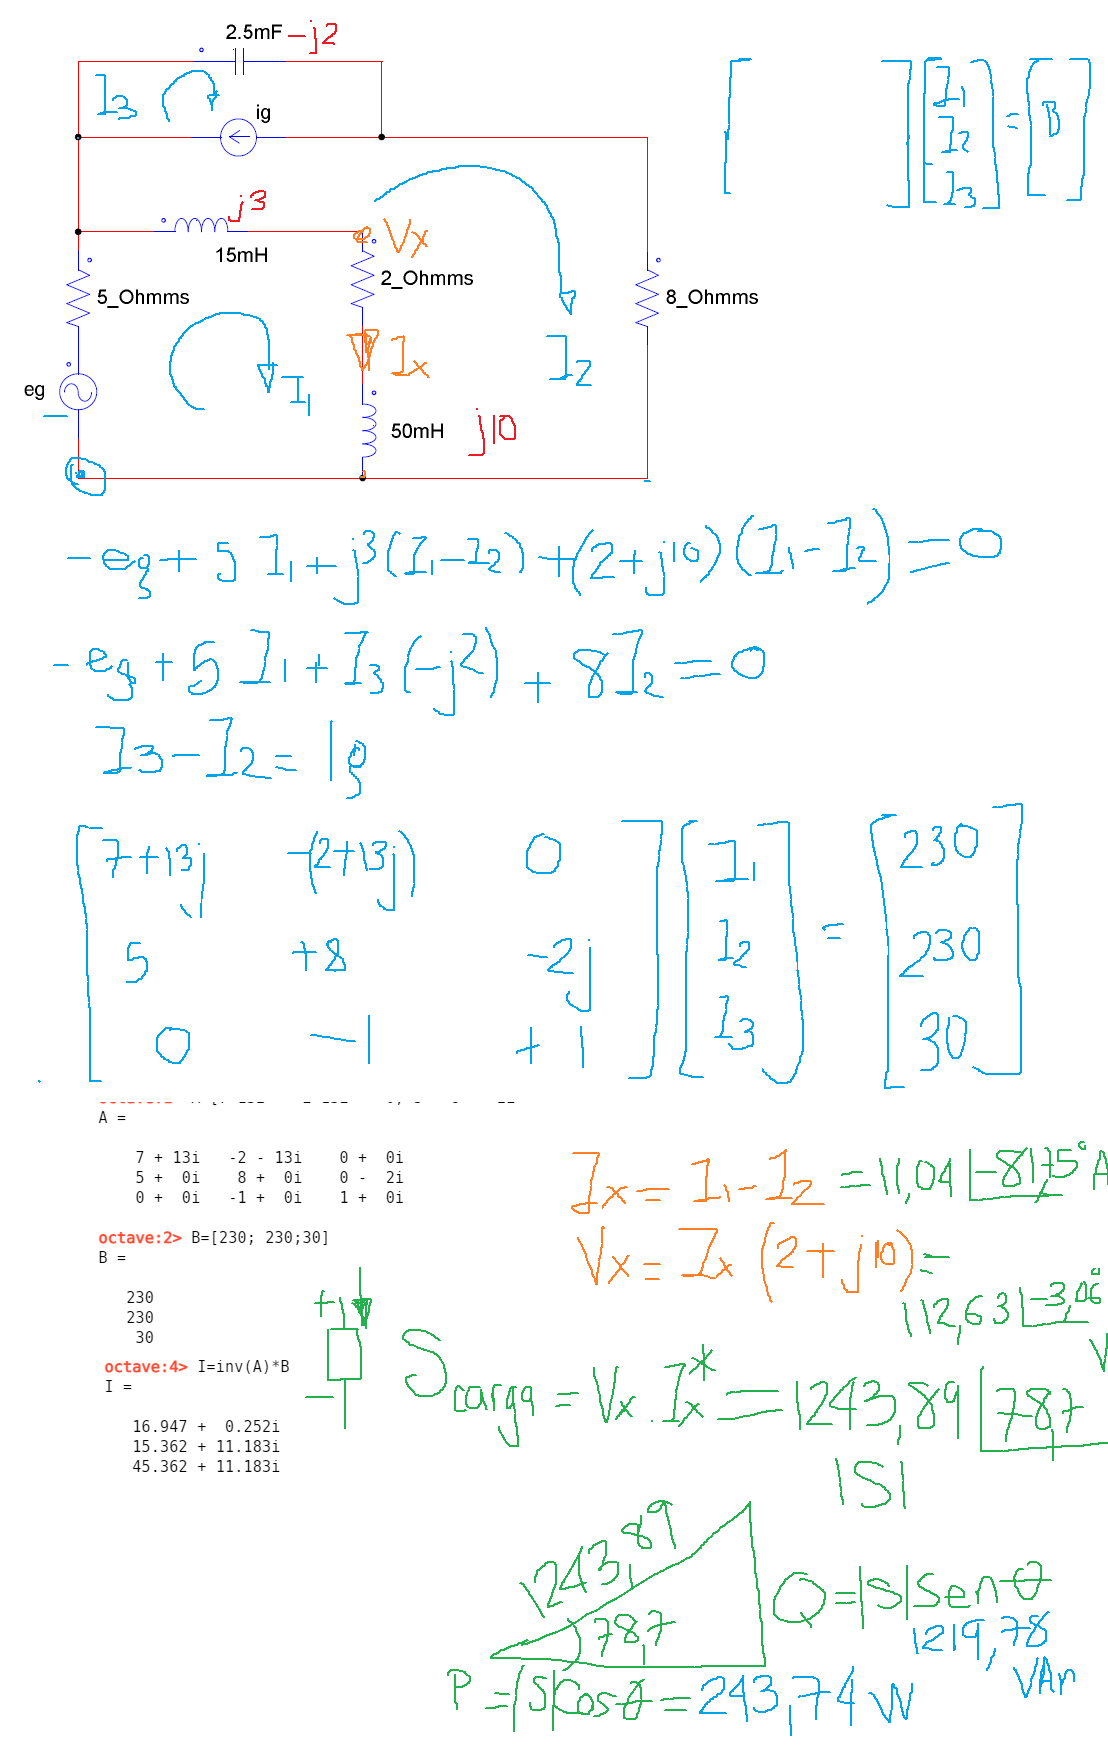 2.5mF -j2
I3
ig
j3
15mH
Vx
5_Ohmms
2_Ohmms
8_Ohmms
Ix
I2
I1
eg
50mH j10
[ ] [I1 I2 I3] = [B]
-eg + 5 I1 + j3(I1-I2) + (2+j10)(I1-I2) = 0
-eg + 5 I1 + I3(-j2) + 8I2 = 0
I3 - I2 = Ig
7+13j -(2+13j) 0 I1 230
5 +8 -2j I2 = 230
0 -1 +1 I3 30
A =
7 + 13i -2 - 13i 0 + 0i
5 + 0i 8 + 0i 0 - 2i
0 + 0i -1 + 0i 1 + 0i
octave:2> B=[230; 230;30]
B =
230
230
30
octave:4> I=inv(A)*B
I =
16.947 + 0.252i
15.362 + 11.183i
45.362 + 11.183i
Ix = I1 - I2 = 11,04 |-81,75° A
Vx = Ix (2+j10) =
112,63 |-3,06° V
+
-
Scarga = Vx . Ix* = 1243,89 |78,7
|S|
1243,89
78,7
Q = |S| Sen θ
1219,78
VAr
P = |S| Cos θ = 243,74 W